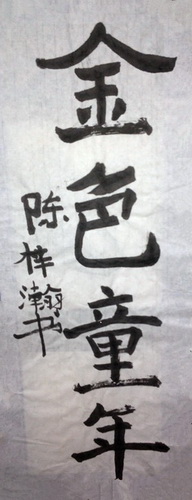 金色童年
陈梓瀚书